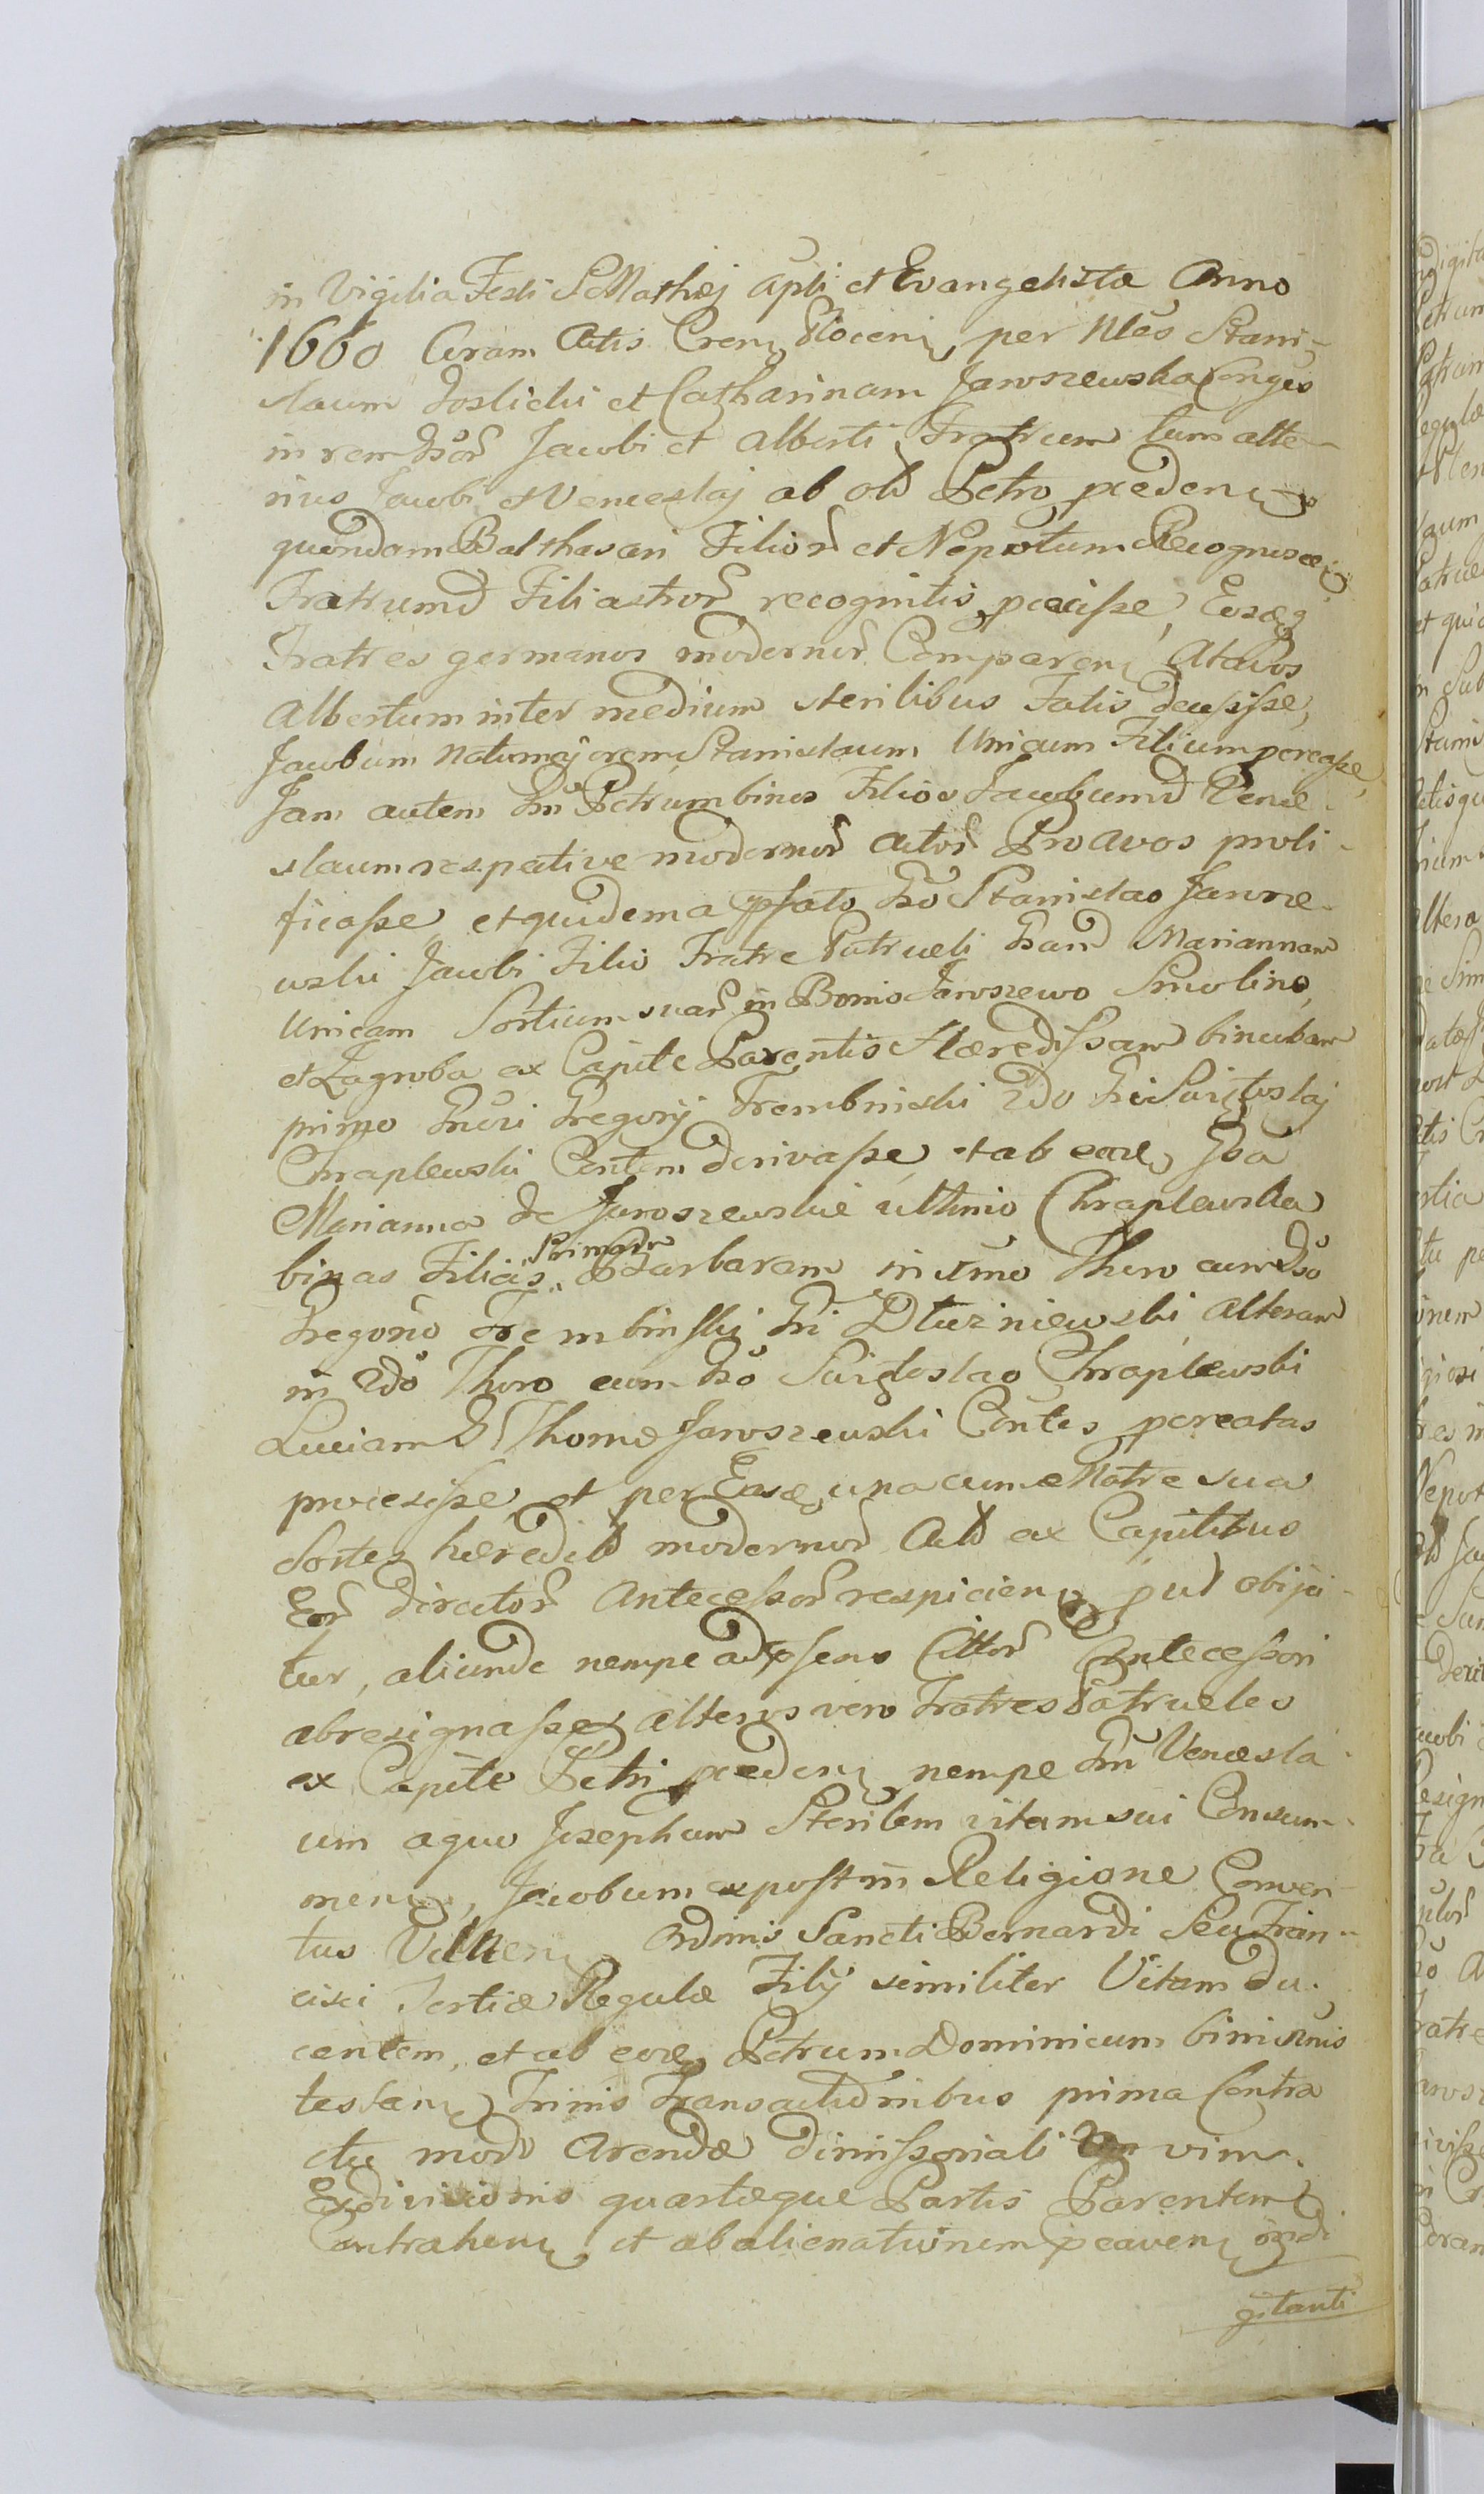 in Vigilia Festi S Mathæj Apli et Evangelistæ Anno
1660 Coram Actis Cren Plocen, per Nles Stani-
slaum Joslicki et Catharinam Jaroszewska Conges
in rem Jacobi et Alberti Fratrum tum alte-
rius Jacobi et Venceslaj ab olb Petro præden
quondam Balthasari Filior et Nepotum Recognoscen
Fratrumq Filiastror recognitis præcisse, Eosq
Fratres germanos modernor Comparen Atavos
Albertum inter medium sterilibus Fatis decessisse,
Jacobum natu majorem, Stanislaum Unicum Filium porcasse,
Jam autem Gn Petrum binos Filios Jacobumq Vence-
slaum respective modernor Actor Proavos proli-
ficasse et quidem a psato Gso Stanislao Jarosze-
wski Jacobi Filio Fratre Patrueli Gsam Mariannam
Unicam Sortium suar in Bonis Jaroszewo Smolino,
et Zagroba ex Capite Parentis Hæredissam binubam
primo Gnosi Gregorij Trembinski 2do Gsi Swiętoslaj
Chraplewski Contem derivasse, et ab ead Gsa
Marianna de Jaroszewskie ultimo Chraplewska
binas Filias, Primam Barbaram in 1mo Thoro cum Gso
Gregorio Trembinski Gsi Dłuzniewski, Alteram
in 2do Thoro cum Gso Swiętoslao Chraplewski
Luciam G Thomæ Jaroszewski Contes porcatas
processisse, et per Easd una cum Matre sua
Sortes hæredit modernor Act ex Capitibus
Eor director Antecessor respicien put obijci-
tur, aliunde nempe ad psens Actor Antecessori
abresignasse, Alteros vero Fratres Patrueles
ex Capite Petri præden nempe Gn Vencesla-
um a quo Josephum Sterilem vitam sui Consum-
men, Jacobum ex post in Religione Conven-
tus Ordinis Sancti Bernardi Seu Fran-
cisci Tertiæ Regulæ Filij similiter Vitam du-
centem, et ab eod Petrum Dominicum binominis
testan Trinis Transactionibus prima Contra
ctu modo Arendæ dimissoriali vim
Exdivisionis quartæque Partis Parentem
Contrahen et abalienationem præcaven indi
gitanti